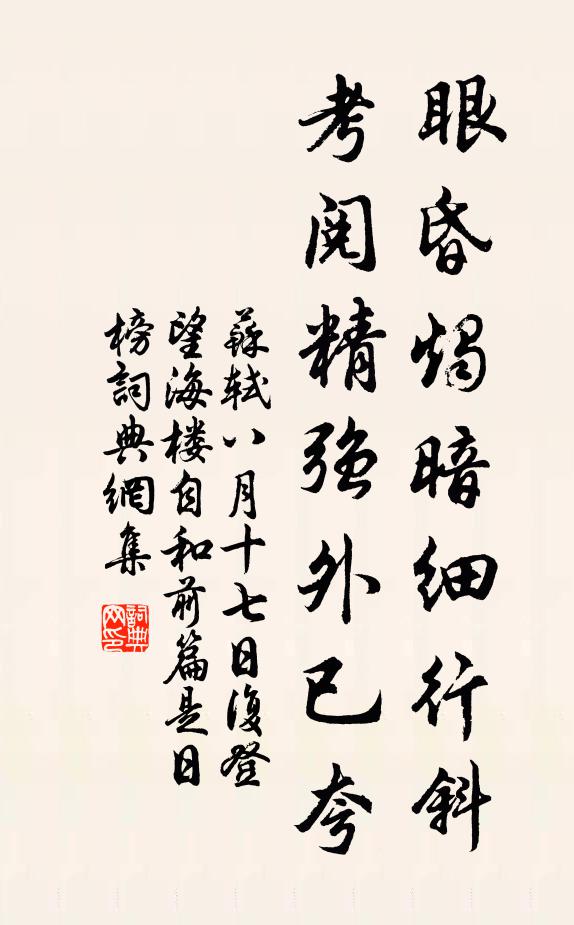 眼昏燭暗細行斜
考閱精強外已夸
蘇軾八月十七日復登
望海楼自和前篇是日
榜詞典網集
詞典
网印